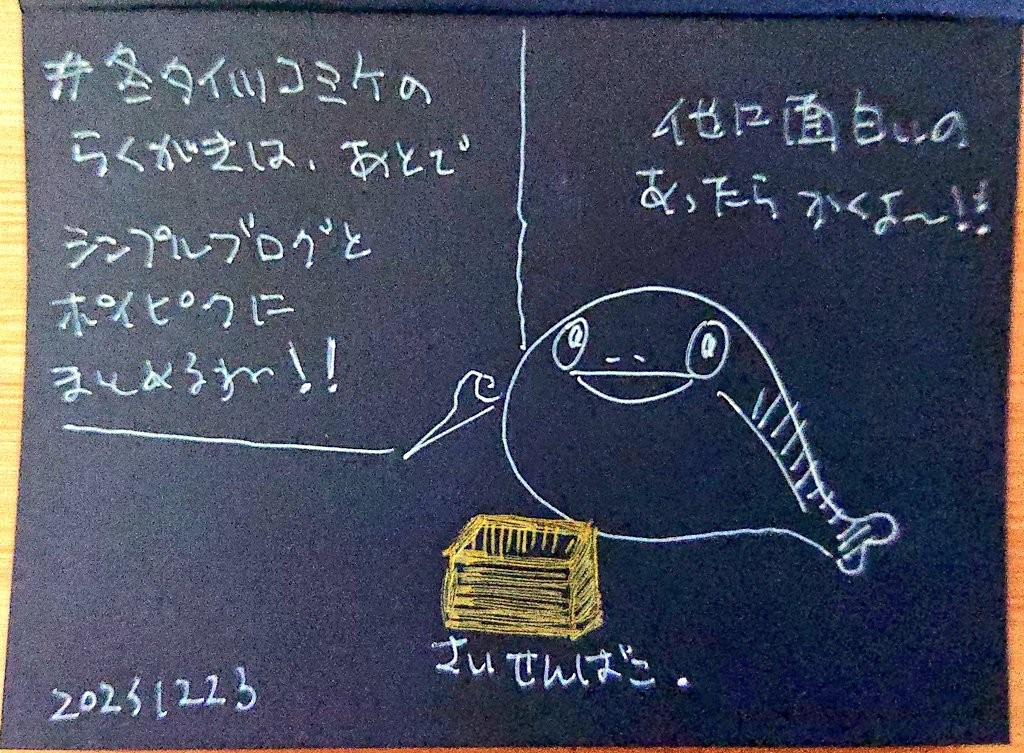 #冬タイツコミケの
らくがきは、あとで
シンプルブログと
ポイピクに
まとめるねー!!
他に面白いの
あったらかくよ〜!!
さいせんばこ.
20231223